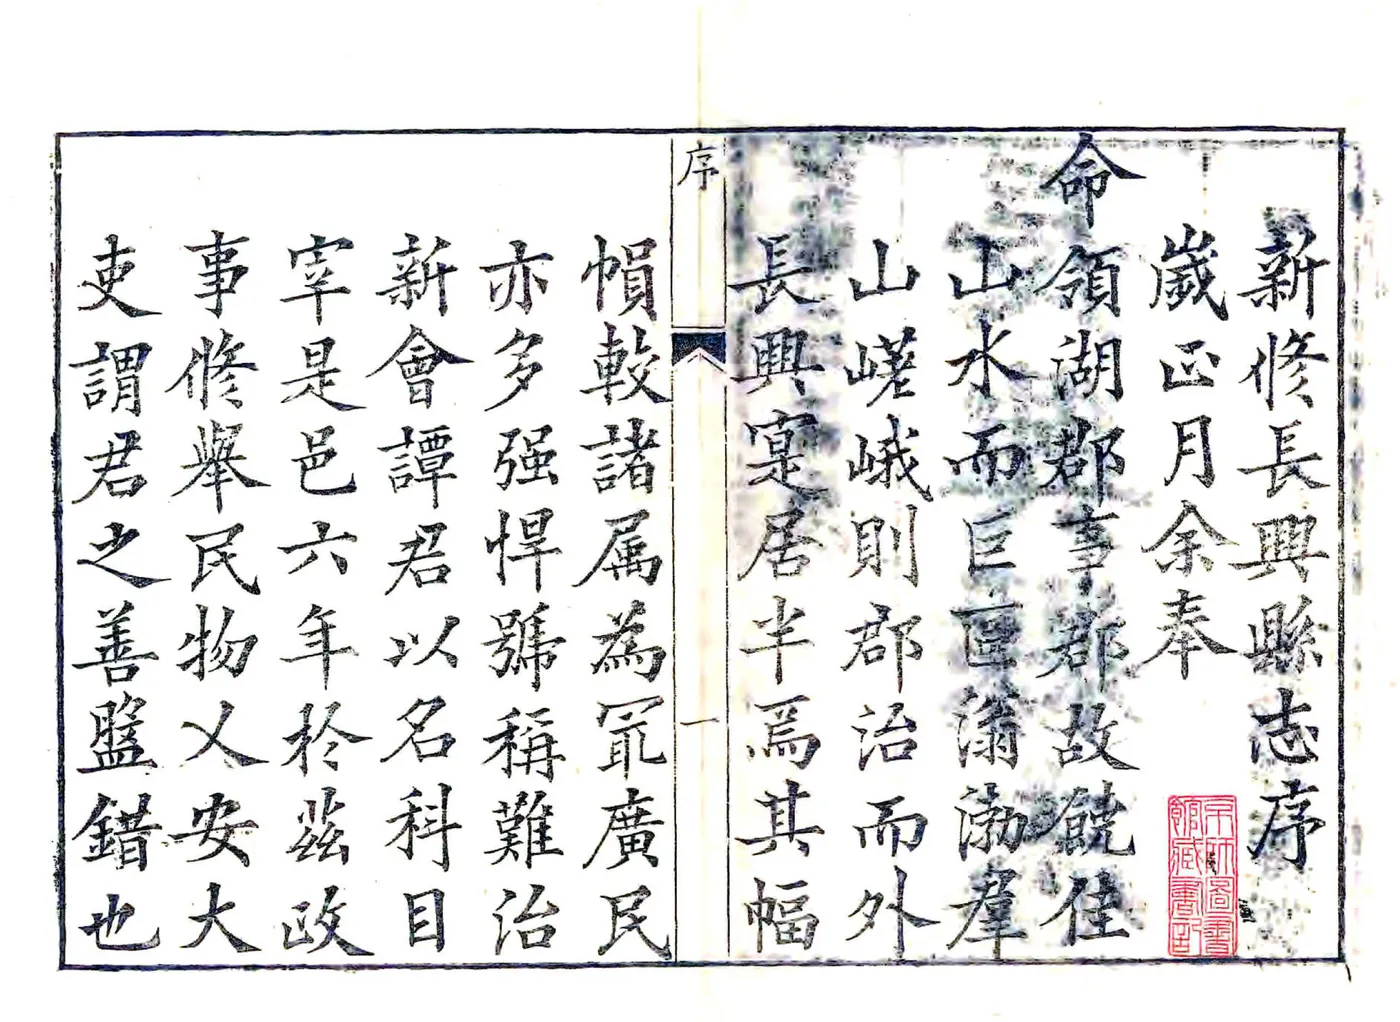 新修長興縣志序
歲正月余奉
命領湖郡事郡故饒佳
山水而巨區滃渤羣
山嵯峨則郡治而外
長興寔居半焉其幅
序
一
幀較諸属為冣廣民
亦多强悍號稱難治
新會譚君以名科目
宰是邑六年於茲政
事修舉民物乂安大
吏謂君之善盬錯也